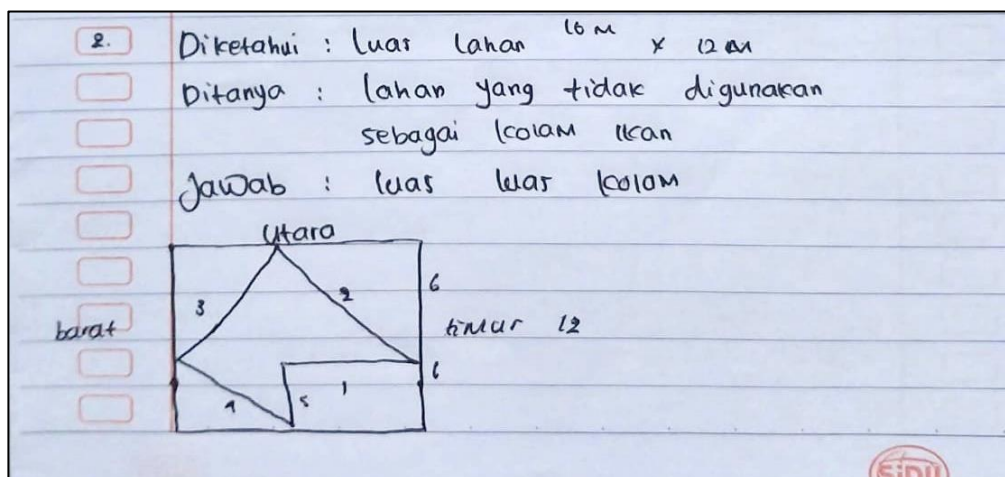 2. Diketahui : luas lahan 16 M x 12 M
Ditanya : lahan yang tidak digunakan
sebagai kolam ikan
Jawab : luas luas kolam
Utara
6
3 2
barat timur 12
6
4 5 1
SiDU